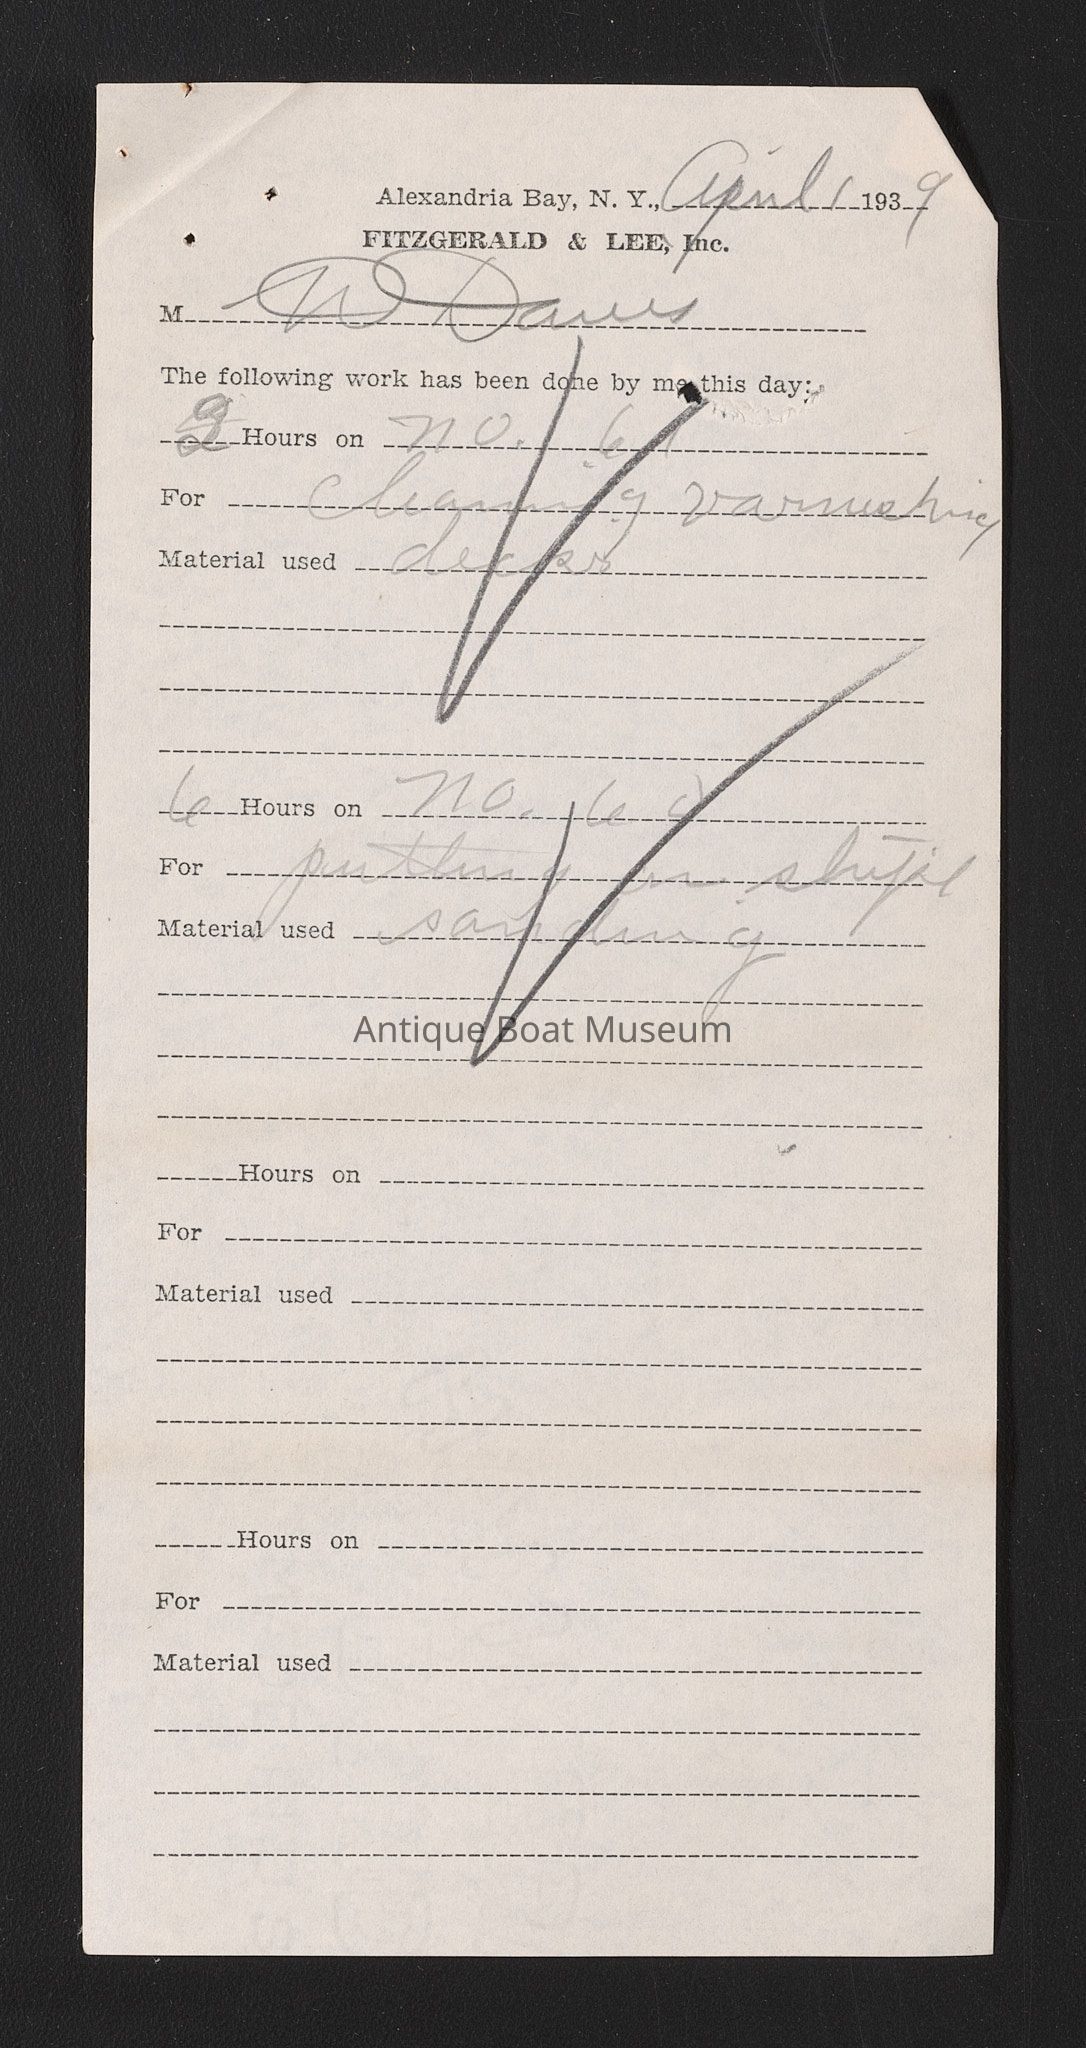 Alexandria Bay, N. Y., April 1 1939
FITZGERALD & LEE, Inc.
M W Daws
The following work has been done by me this day:
Hours on no. 61
For Cleaning varnushing
Material used decks
6 Hours on no. 62
For putting in
Material used sanding
Antique Boat Museum
Hours on
For
Material used
Hours on
For
Material used